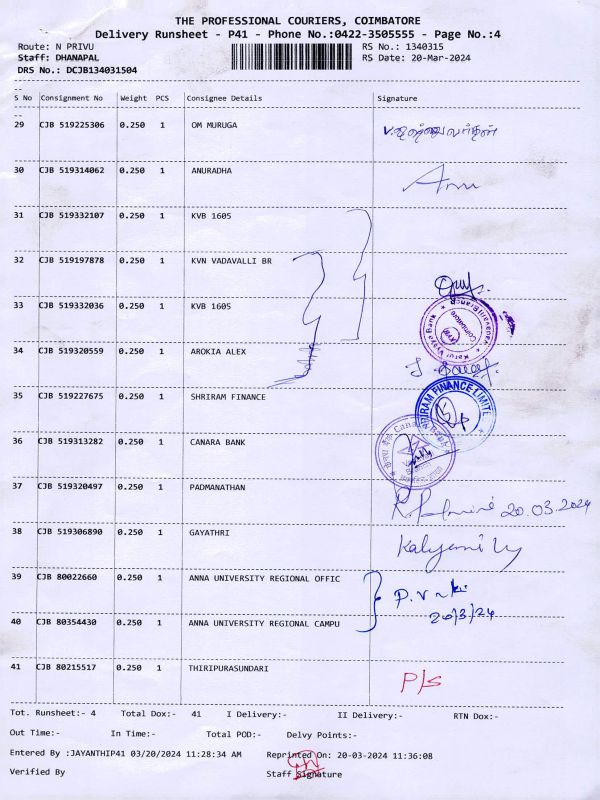 THE PROFESSIONAL COURIERS, COIMBATORE
Delivery Runsheet - P41 - Phone No.:0422-3505555 - Page No.:4
Route: N PRIVU RS No.: 1340315
Staff: DHANAPAL RS Date: 20-Mar-2024
DRS No.: DCJB134031504
S No Consignment No Weight PCS Consignee Details Signature
29 CJB 519225306 0.250 1 OM MURUGA
30 CJB 519314062 0.250 1 ANURADHA Anu
31 CJB 519332107 0.250 1 KVB 1605
32 CJB 519197878 0.250 1 KVN VADAVALLI BR
33 CJB 519332036 0.250 1 KVB 1605
Karur Vysya Bank
Coimbatore
34 CJB 519320559 0.250 1 AROKIA ALEX
35 CJB 519227675 0.250 1 SHRIRAM FINANCE
SHRIRAM FINANCE LIMITE
36 CJB 519313282 0.250 1 CANARA BANK
Canara Bank
37 CJB 519320497 0.250 1 PADMANATHAN 20.03.2024
38 CJB 519306890 0.250 1 GAYATHRI
39 CJB 80022660 0.250 1 ANNA UNIVERSITY REGIONAL OFFIC
20/3/24
40 CJB 80354430 0.250 1 ANNA UNIVERSITY REGIONAL CAMPU
41 CJB 80215517 0.250 1 THIRIPURASUNDARI P/S
Tot. Runsheet:- 4 Total Dox:- 41 I Delivery:- II Delivery:- RTN Dox:-
Out Time:- In Time:- Total POD:- Delvy Points:-
Entered By :JAYANTHIP41 03/20/2024 11:28:34 AM Reprinted On: 20-03-2024 11:36:08
Verified By Staff Signature